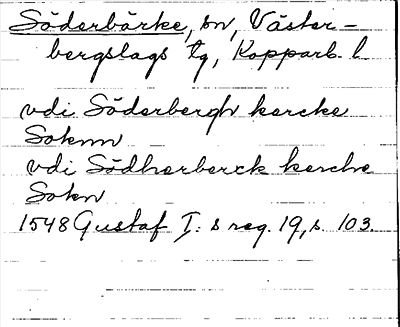 Söderbärke, sn, Väster-
bergslags tg, Kopparb. l
vdi Söderbergh kercke
Soknn
vdi Södherberck kerche
Sokn
1548 Gustaf I:s reg. 19, s. 103.